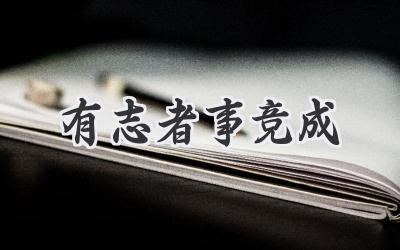 有志者事竞成